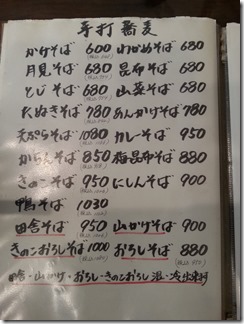 手打蕎麦
かけそば 600 わかめそば 680
月見そば 680 昆布そば 680
とじそば 680 山菜そば 680
たぬきそば 780 あんかけそば 780
天ぷらそば 1080 カレーそば 950
からみそば 850 梅昆布そば 880
きのこそば 950 にしんそば 900
鴨そば 1030
田舎そば 950 山かけそば 900
きのこおろしそば 1000 おろしそば 880
田舎・山かけ・おろし・きのこおろし 温・冷出来ます